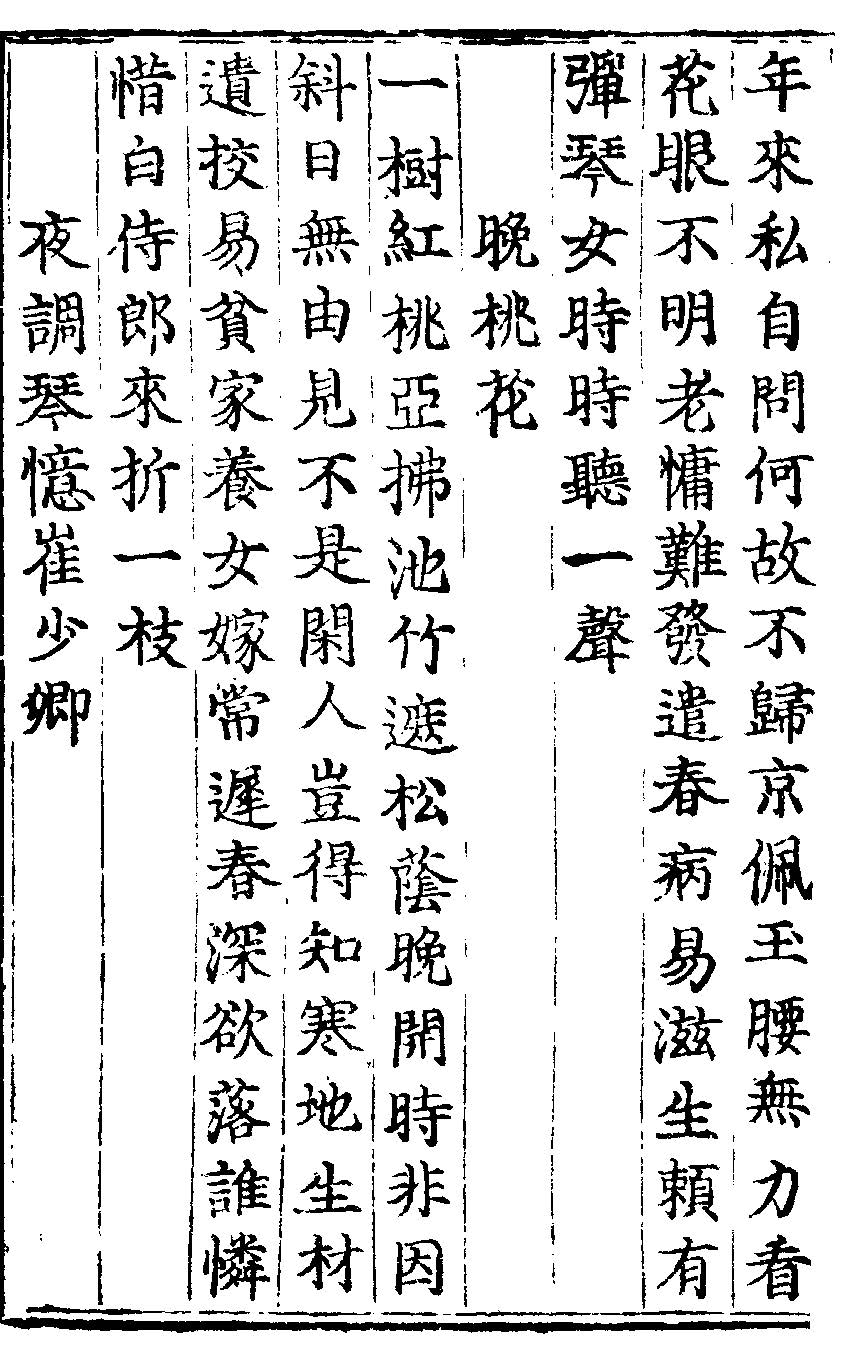 年來私自問何故不歸京佩玉腰無力看
花眼不明老慵難發遣春病易滋生頼有
彈琴女時時聽一聲
晚桃花
一樹紅桃亞拂池竹遮松蔭晚開時非因
斜日無由見不是閑人豈得知寒地生材
遺挍易貧家養女嫁常遲春深欲落誰憐
惜白侍郎來折一枝
夜調琴憶崔少卿